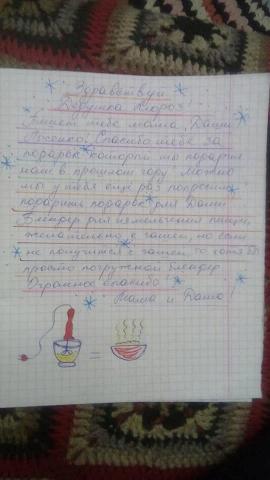 Здравствуй
Дедушка Мороз!
Пишет тебе мама, Даши
Спасибо тебе за
подарок который ты подарил
нам в прошлом году! Можно
мы у тебя ещё раз попросим
подарить подарок для Даши
Блендер для измельчения пищи,
желательно с чашей, но если
не получится с чашей, то хотя бы
просто погружной блендер
Огромное спасибо!
Мама и Даша!